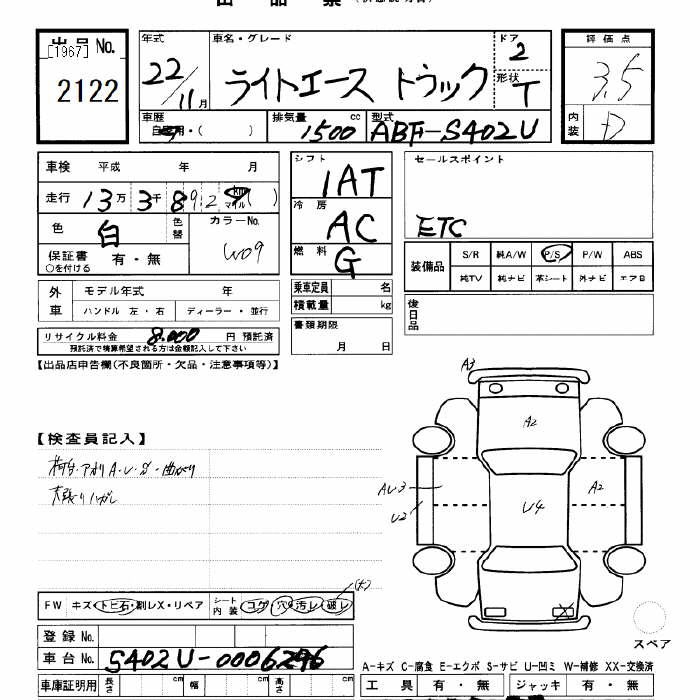 出品票
出品 No. [1967] 2122
年式 22/11月
車名・グレード ライトエース トラック
ドア 2
形状 T
評価点 3.5
内装 D
車歴 自家用・( )
排気量 1500 cc
型式 ABF-S402U
車検 平成 年 月
走行 13万 3千 8 9 2 km マイル ( )
色 白 色替
カラーNo. W09
保証書 有・無
○を付ける
シフト 1AT
冷房 AC
燃料 G
セールスポイント
ETC
装備品 S/R 純A/W P/S P/W ABS
純TV 純ナビ 革シート 外ナビ エアB
外車 モデル年式 年
ハンドル 左・右 ディーラー・並行
乗車定員 名
積載量 kg
後日品
リサイクル料金 8,000 円 預託済
預託済で精算希望される方は金額記入して下さい
書類期限
月 日
【出品店申告欄(不良箇所・欠品・注意事項等)】
A3
A2
【検査員記入】
荷台・アオリ A・U・S・曲がり
天張りハガレ
AU3
U2
U4
A2
FW キズ・トビ石・割レX・リペア
シート内装 コゲ 穴 汚レ 破レ (大)
X
スペア
登録 No.
車台 No. S402U-0006296
A-キズ C-腐食 E-エクボ S-サビ U-凹ミ W-補修 XX-交換済
車庫証明用 長さ cm 幅 cm 高さ cm
工具 有・無 ジャッキ 有・無